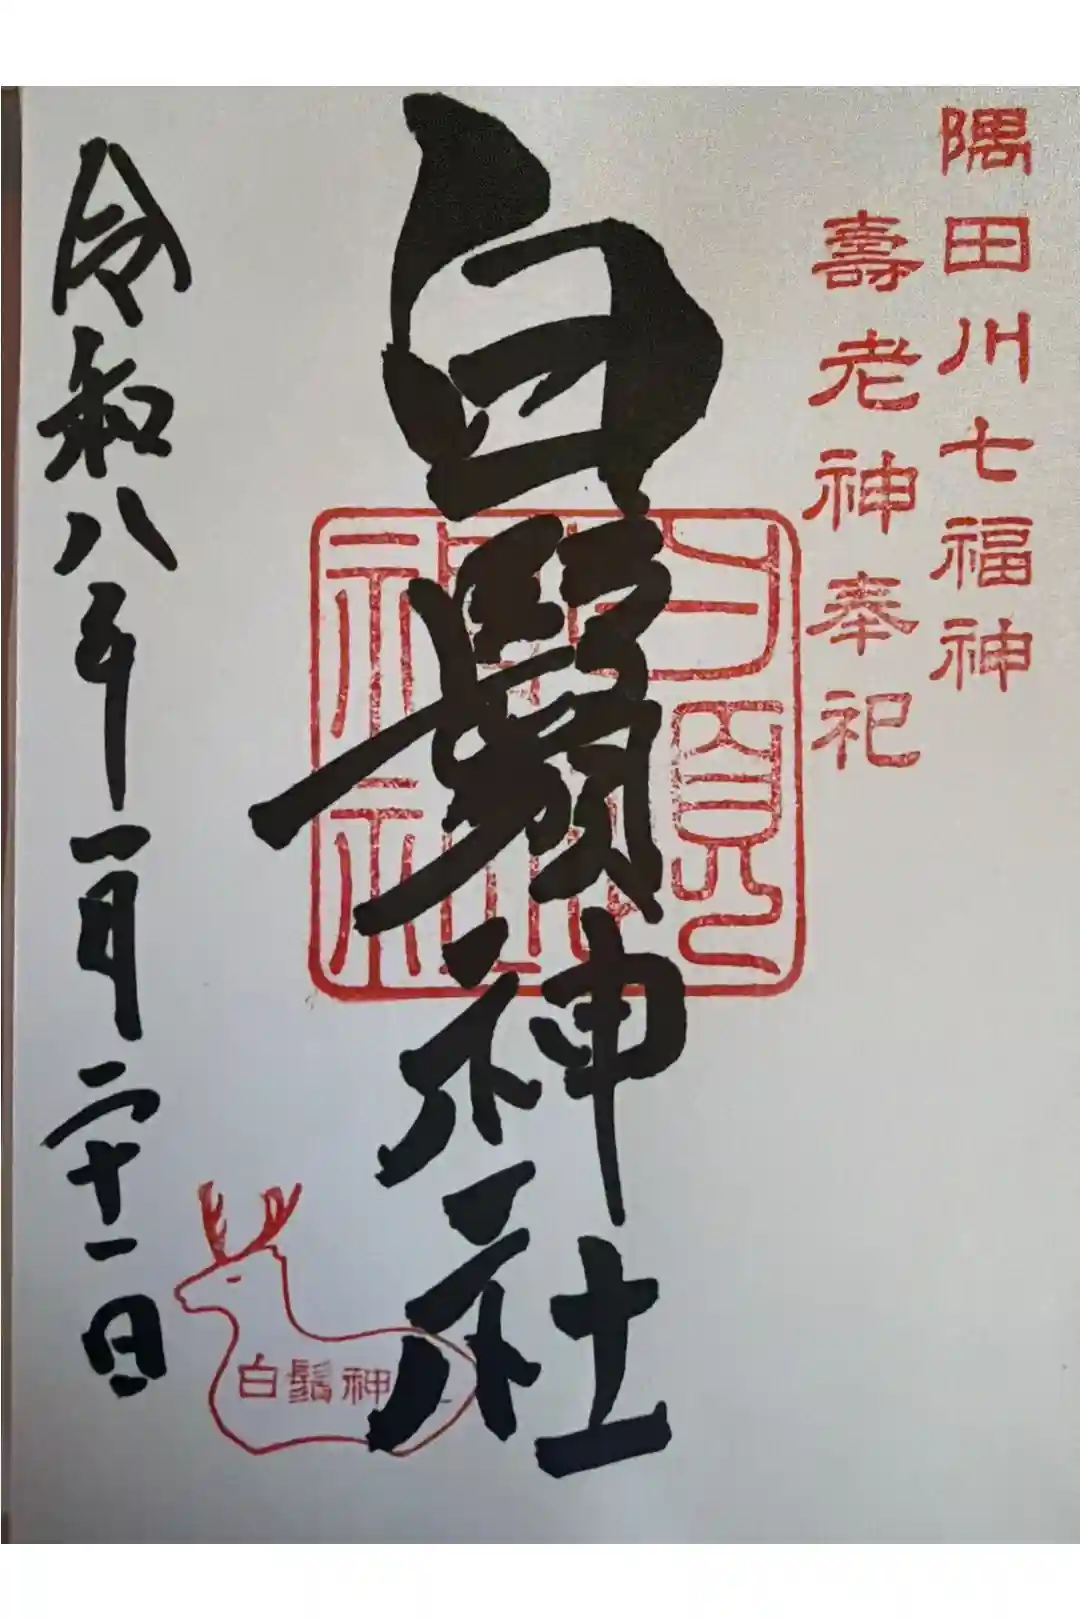 隅田川七福神
壽老神奉祀
白鬚神社
令和八年一月二十一日
白鬚神